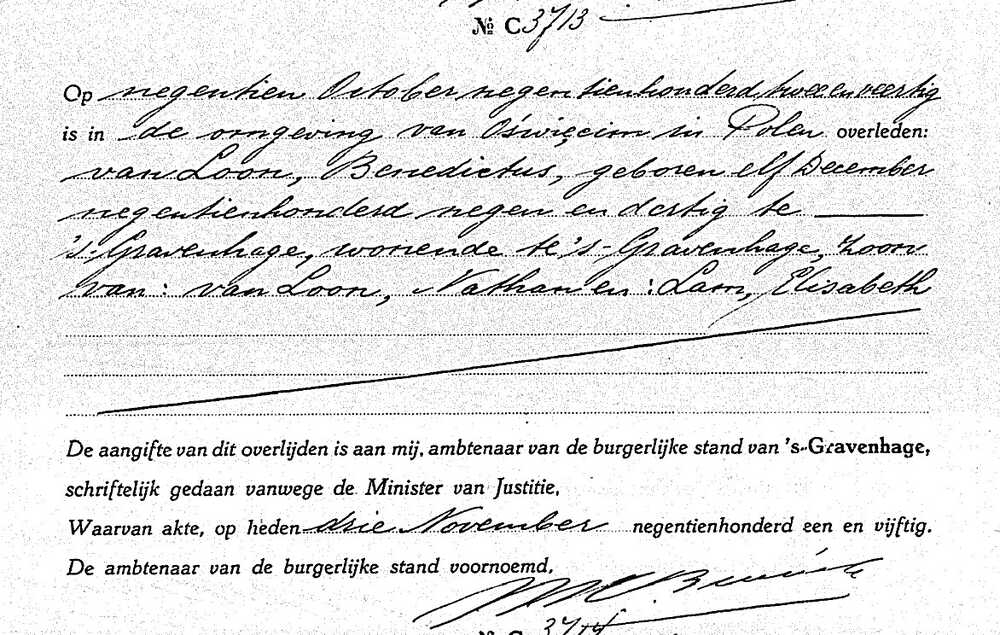 № C 3713
Op negentien October negentienhonderd twee en veertig
is in de omgeving van Oświęcim in Polen overleden:
van Loon, Benedictus, geboren elf December
negentienhonderd negen en dertig te
's-Gravenhage, wonende te 's-Gravenhage, zoon
van: van Loon, Nathan en: Lam, Elisabeth
De aangifte van dit overlijden is aan mij, ambtenaar van de burgerlijke stand van 's-Gravenhage,
schriftelijk gedaan vanwege de Minister van Justitie.
Waarvan akte, op heden drie November negentienhonderd een en vijftig.
De ambtenaar van de burgerlijke stand voornoemd,